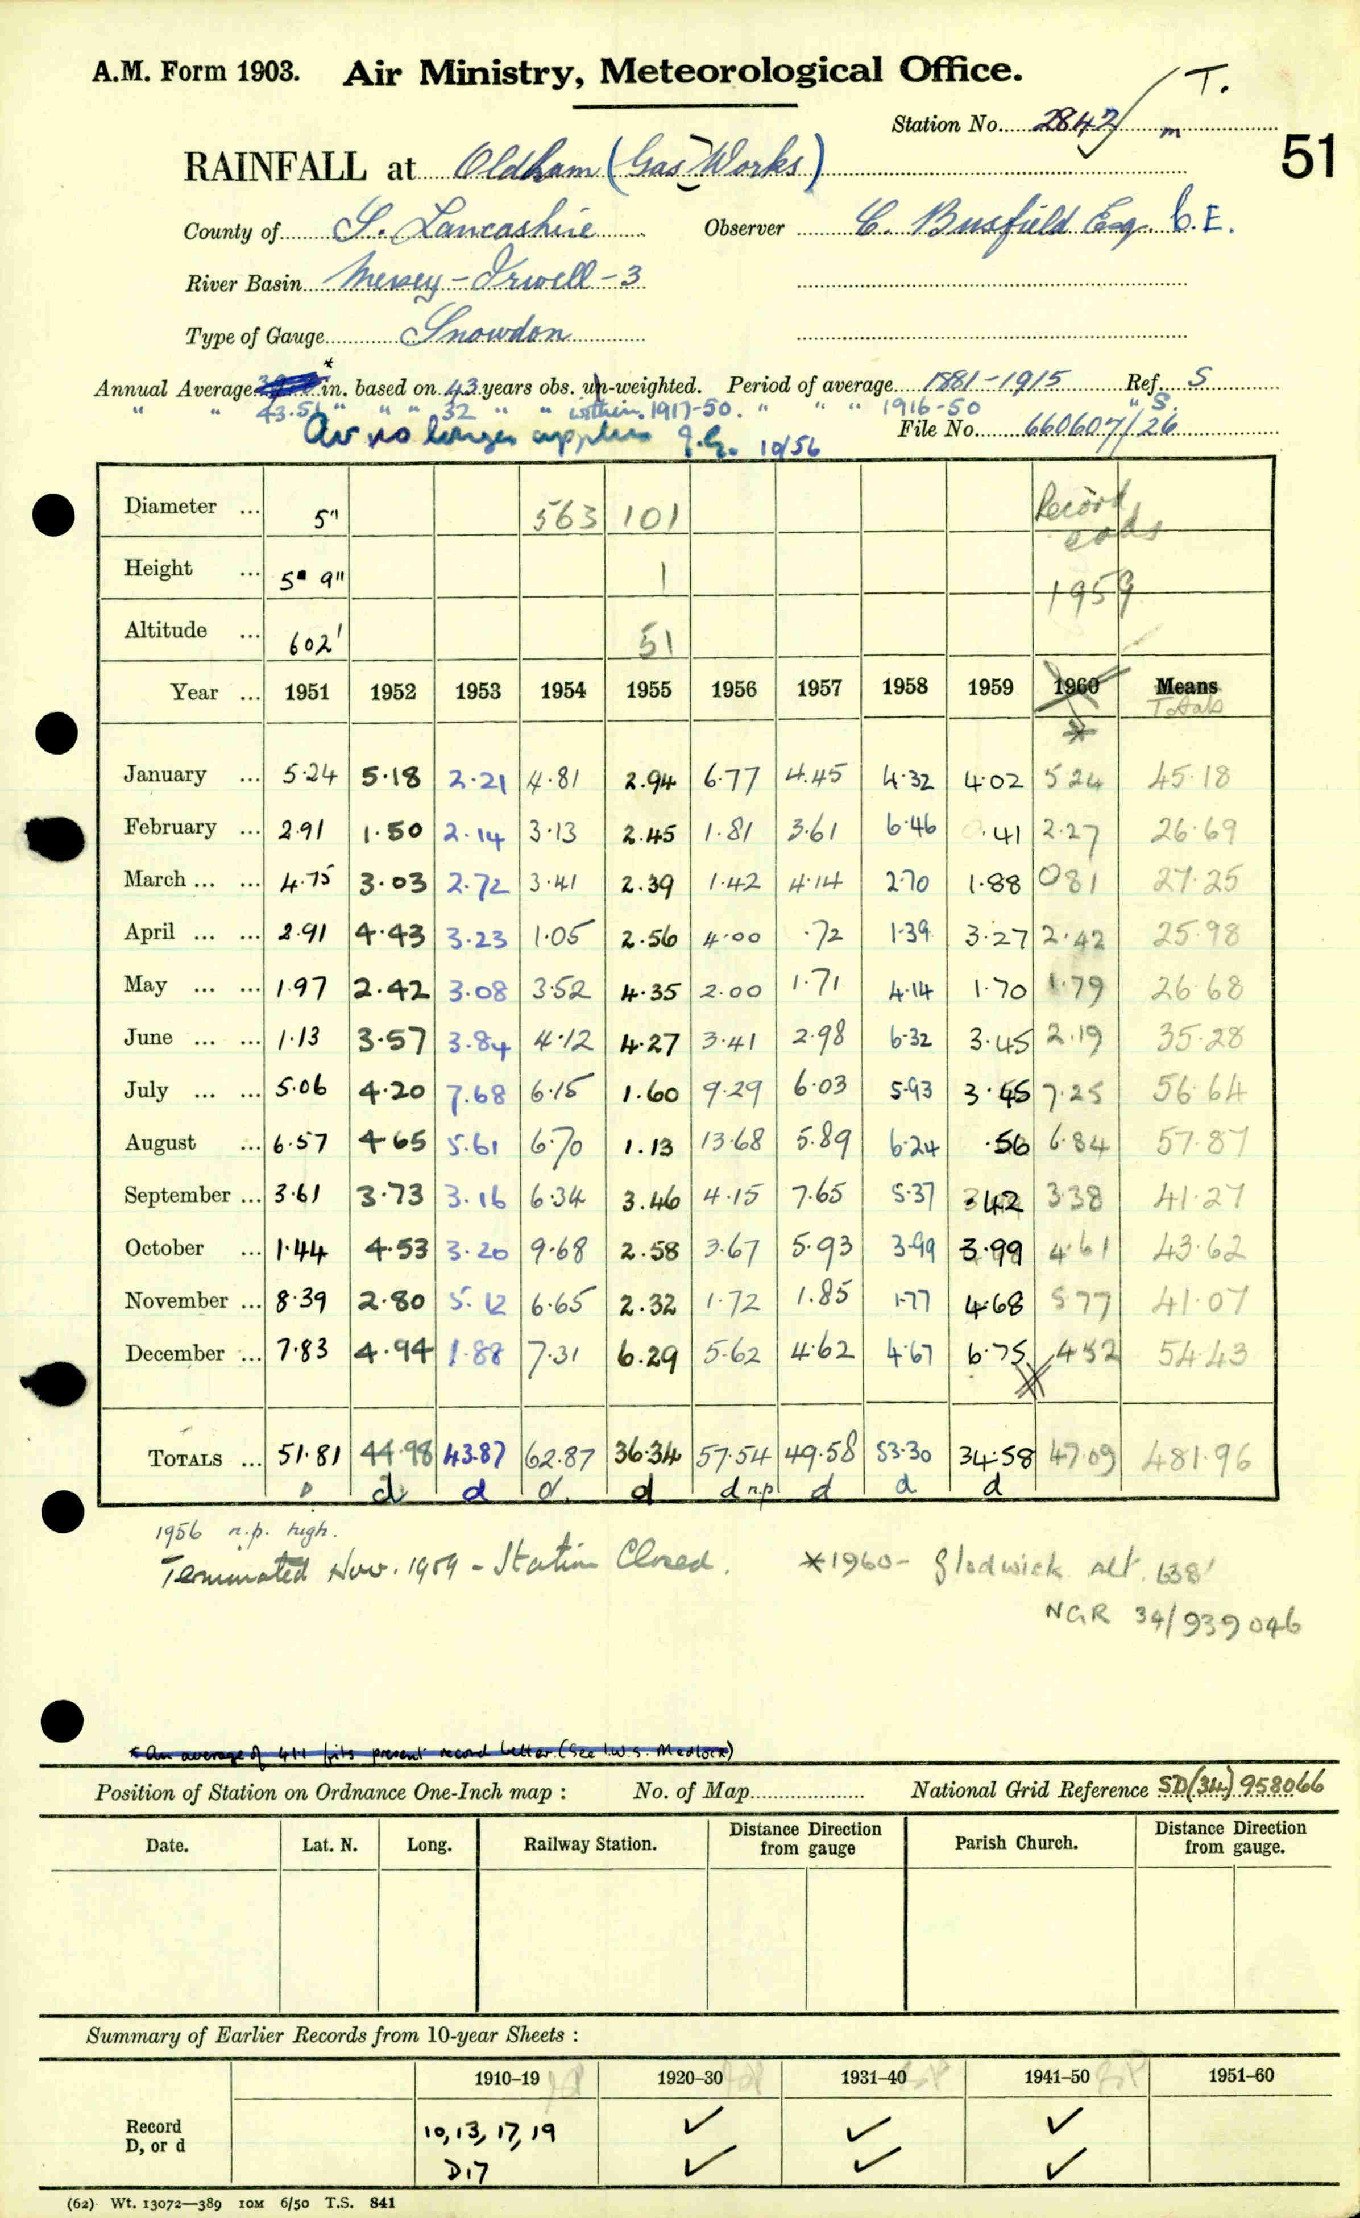 A.M. Form 1903. Air Ministry, Meteorological Office. T.
Station No. 2842/ m
51
RAINFALL at Oldham (Gas Works)
County of S. Lancashire Observer C. Busfield Esq. C.E.
River Basin Mersey - Irwell - 3
Type of Gauge Snowdon
Annual Average in. based on 43 years obs. un-weighted. Period of average 1881-1915 Ref. S
" " 43.51 " " " 32 " " within 1917-50. " " " 1916-50 " S.
Av no longer applies J.G. 10/56 File No. 660607/26
Diameter ... 5" 563 101 Record ends
Height ... 5" 9" 1 1959
Altitude ... 602' 51
Year ... 1951 1952 1953 1954 1955 1956 1957 1958 1959 1960 Means
* Totals
January ... 5.24 5.18 2.21 4.81 2.94 6.77 4.45 4.32 4.02 5.24 45.18
February ... 2.91 1.50 2.14 3.13 2.45 1.81 3.61 6.46 .41 2.27 26.69
March ... ... 4.75 3.03 2.72 3.41 2.39 1.42 4.14 2.70 1.88 0.81 27.25
April ... ... 2.91 4.43 3.23 1.05 2.56 4.00 .72 1.39 3.27 2.42 25.98
May ... ... 1.97 2.42 3.08 3.52 4.35 2.00 1.71 4.14 1.70 1.79 26.68
June ... ... 1.13 3.57 3.84 4.12 4.27 3.41 2.98 6.32 3.45 2.19 35.28
July ... ... 5.06 4.20 7.68 6.15 1.60 9.29 6.03 5.93 3.45 7.25 56.64
August ... 6.57 4.65 5.61 6.70 1.13 13.68 5.89 6.24 .56 6.84 57.87
September ... 3.61 3.73 3.16 6.34 3.46 4.15 7.65 5.37 .42 3.38 41.27
October ... 1.44 4.53 3.20 9.68 2.58 3.67 5.93 3.99 3.99 4.61 43.62
November ... 8.39 2.80 5.12 6.65 2.32 1.72 1.85 1.77 4.68 5.77 41.07
December ... 7.83 4.94 1.88 7.31 6.29 5.62 4.62 4.67 6.75 4.52 54.43
TOTALS ... 51.81 44.98 43.87 62.87 36.34 57.54 49.58 53.30 34.58 47.09 481.96
D d d d. d d n.p d d d
1956 n.p. high.
Terminated Nov. 1959 - Station Closed. *1960 - Glodwick Alt. 638'
NGR 34/939046
* An average of 41.1 fits present record better (See I.W.S. Medlock)
Position of Station on Ordnance One-Inch map : No. of Map National Grid Reference SD(34) 958066
Date. Lat. N. Long. Railway Station. Distance Direction from gauge Parish Church. Distance Direction from gauge.
Summary of Earlier Records from 10-year Sheets :
1910-19 1920-30 1931-40 1941-50 1951-60
Record 10, 13, 17, 19 ✓ ✓ ✓
D, or d D17 ✓ ✓ ✓
(62) Wt. 13072—389 10M 6/50 T.S. 841